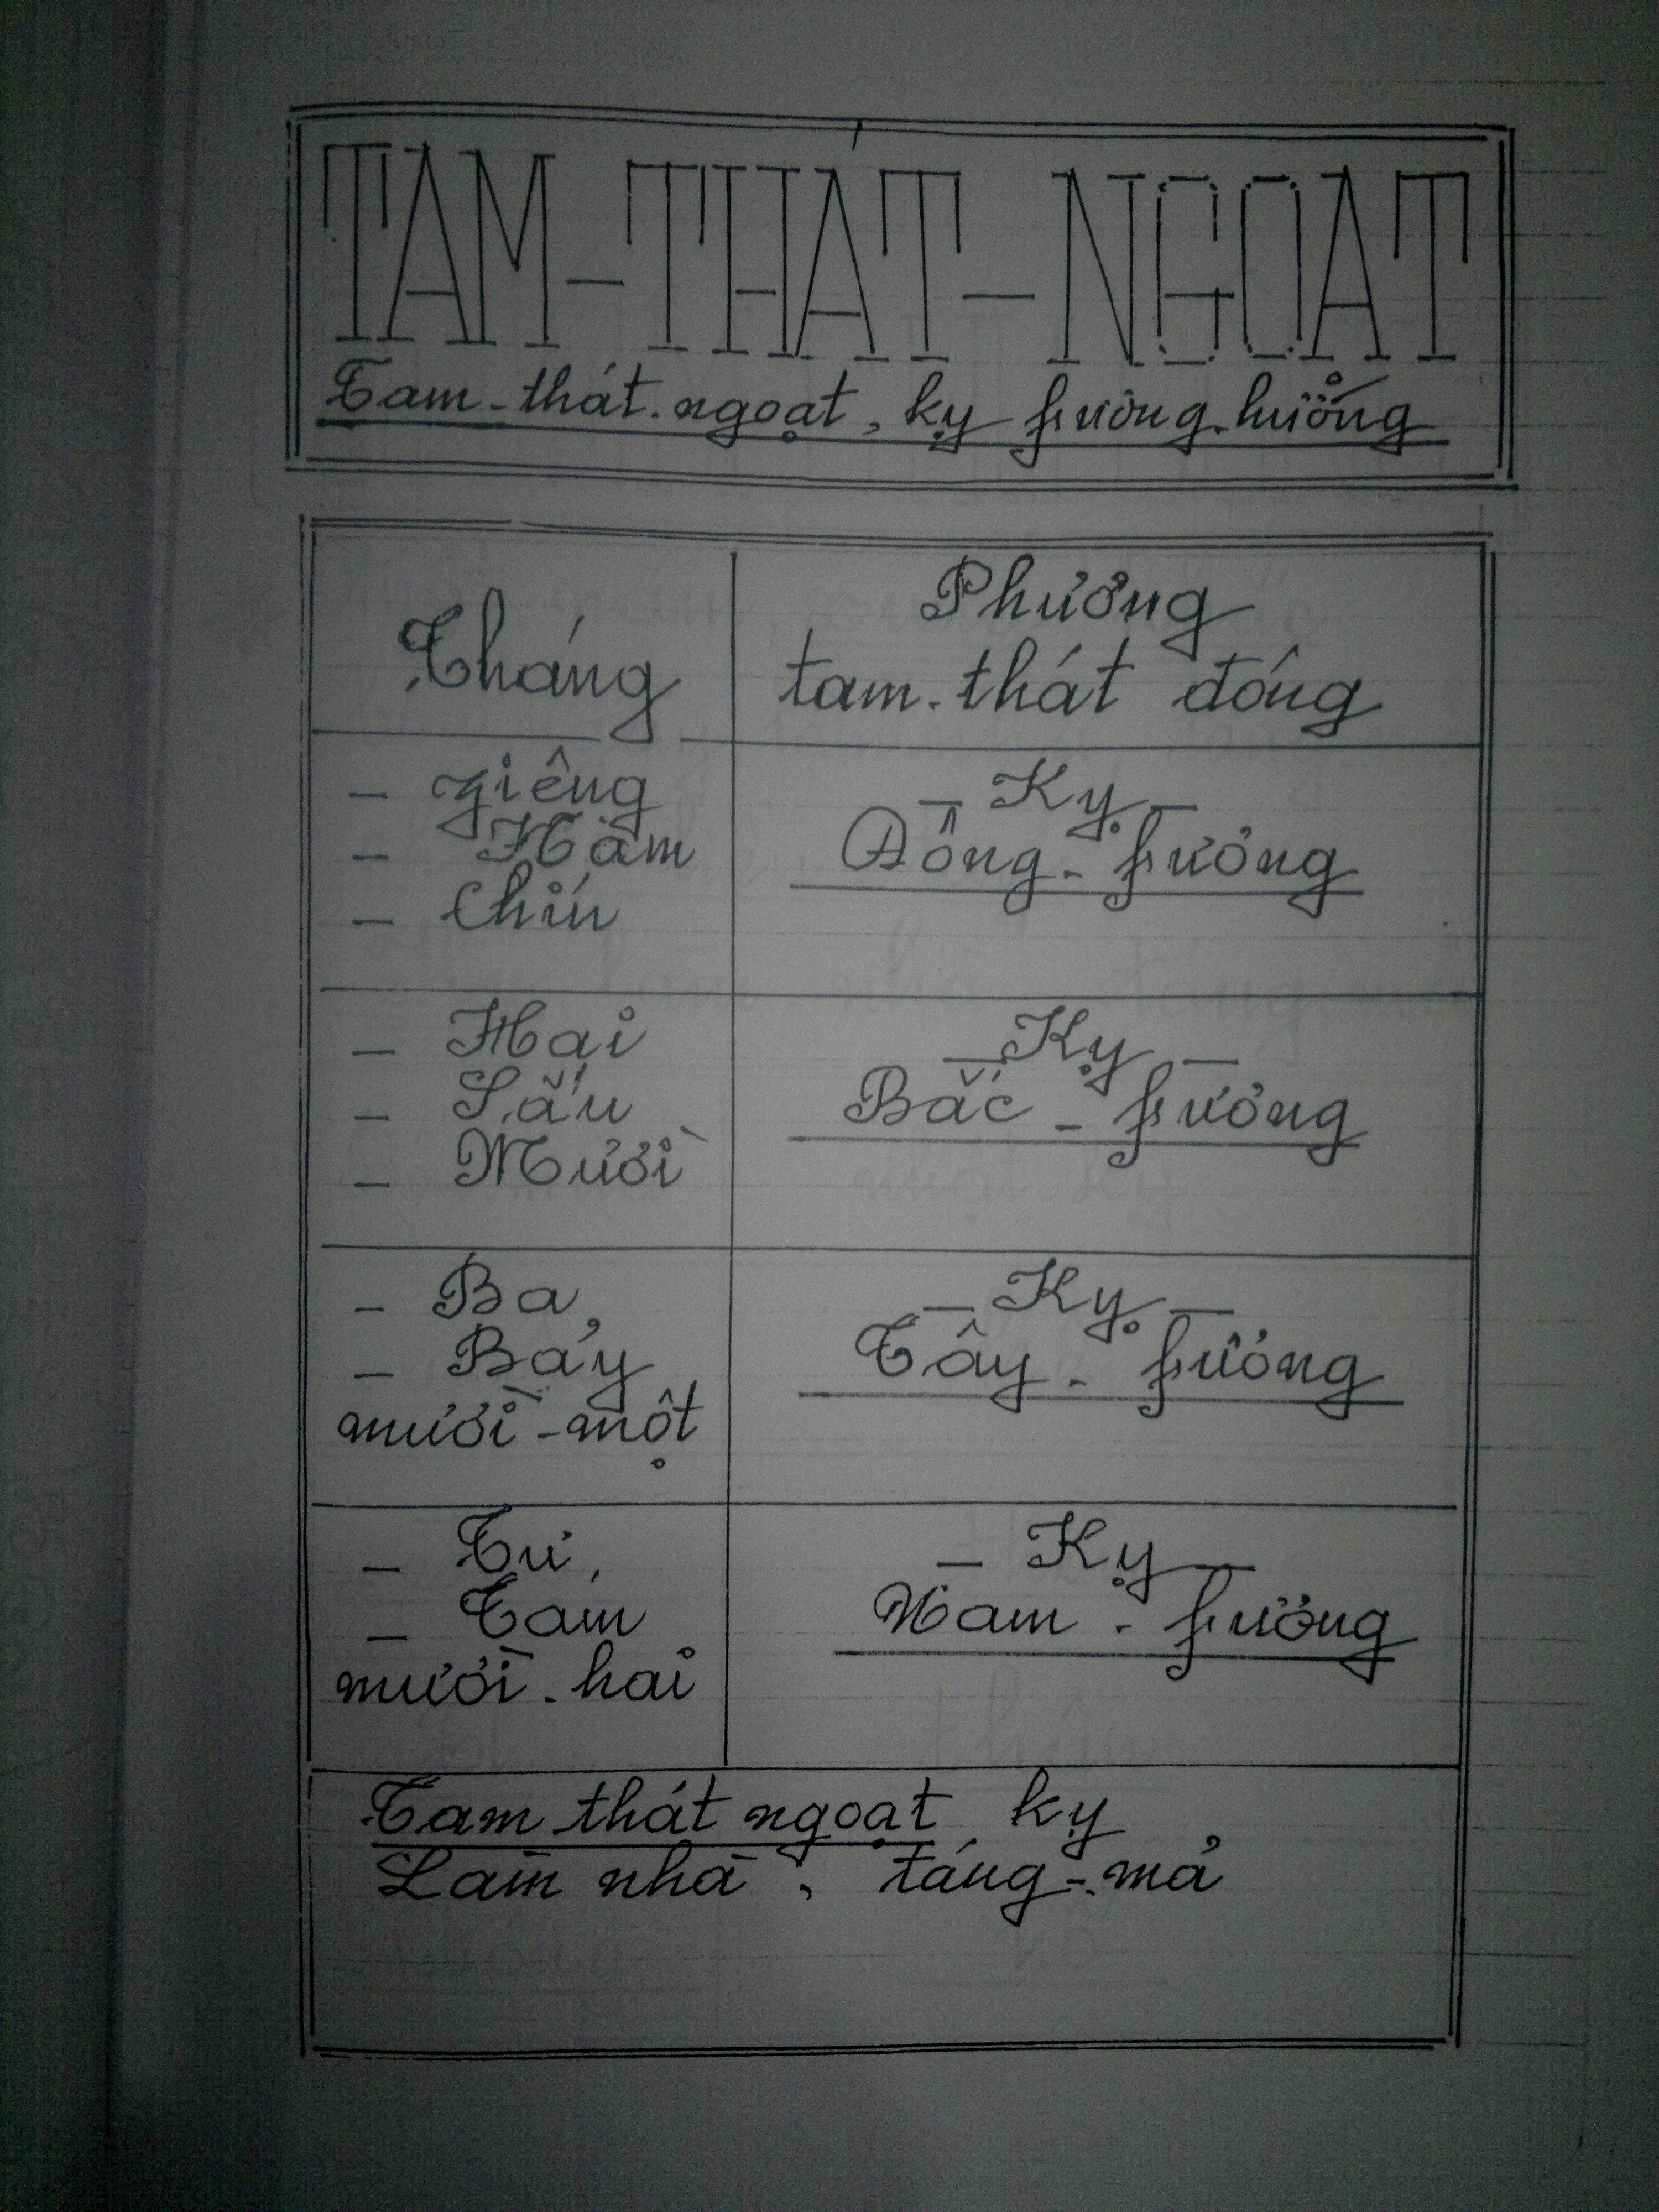 TAM-THÁT-NGOAT
Tam-thát-ngoạt, kỵ phương hướng
Tháng
Phương
tam-thát đóng
- Giêng
- Năm
- Chín
- Kỵ -
Đông-phương
- Hai
- Sáu
- Mười
- Kỵ -
Bắc-phương
- Ba,
- Bảy
mười-một
- Kỵ -
Tây-phương
- Tư,
- Tám
mười-hai
- Kỵ -
Nam-phương
Tam thát ngoạt kỵ
Làm nhà, táng-mả